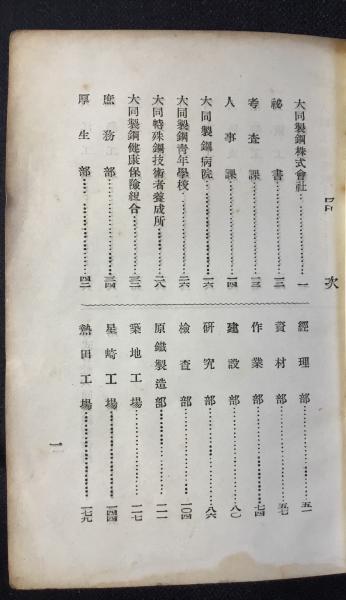 目次
大同製鋼株式會社…………一
祕書…………一二
考査課…………一三
人事課…………一四
大同製鋼病院…………一六
大同製鋼青年學校…………二六
大同特殊鋼技術者養成所…………二八
大同製鋼健康保險組合…………三二
庶務部…………三四
厚生部…………四二
經理部…………五一
資材部…………五七
作業部…………七四
建設部…………八〇
研究部…………八六
檢査部…………一〇四
原鐵製造部…………一一一
築地工場…………一一七
星崎工場…………一四四
熱田工場…………一七九
一